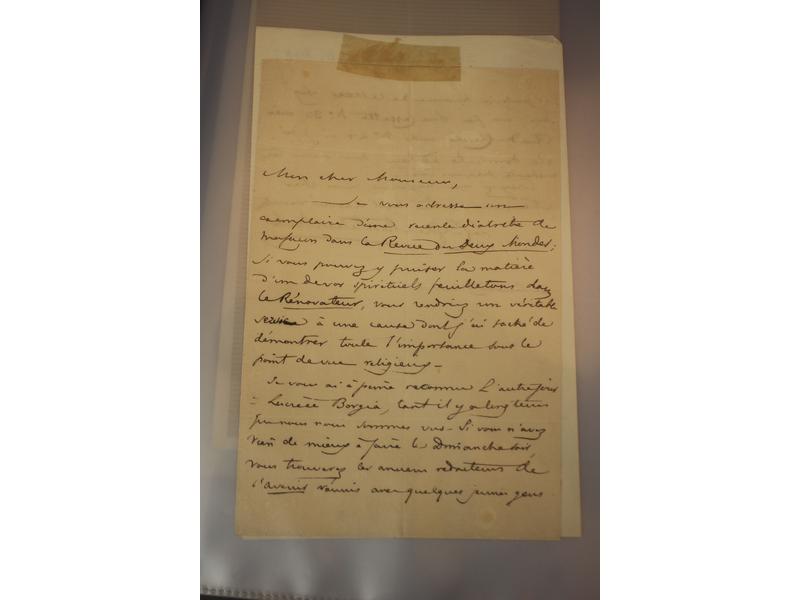 Mon cher Monsieur,
Je vous adresse un
exemplaire d'une récente diatribe de
ma façon dans la Revue des Deux Mondes;
Si vous pouvez y puiser la matière
d'un de vos spirituels feuilletons dans
le Rénovateur, vous rendriez un véritable
service à une cause dont j'ai taché de
démontrer toute l'importance sous le
point de vue religieux -
Je vous ai à peine reconnu l'autre jour
à Lucrèce Borgia, tant il y a longtems
que nous nous sommes vus - Si vous n'avez
rien de mieux à faire le dimanche soir,
vous trouverez les anciens rédacteurs de
l'avenir réunis avec quelques jeunes gens